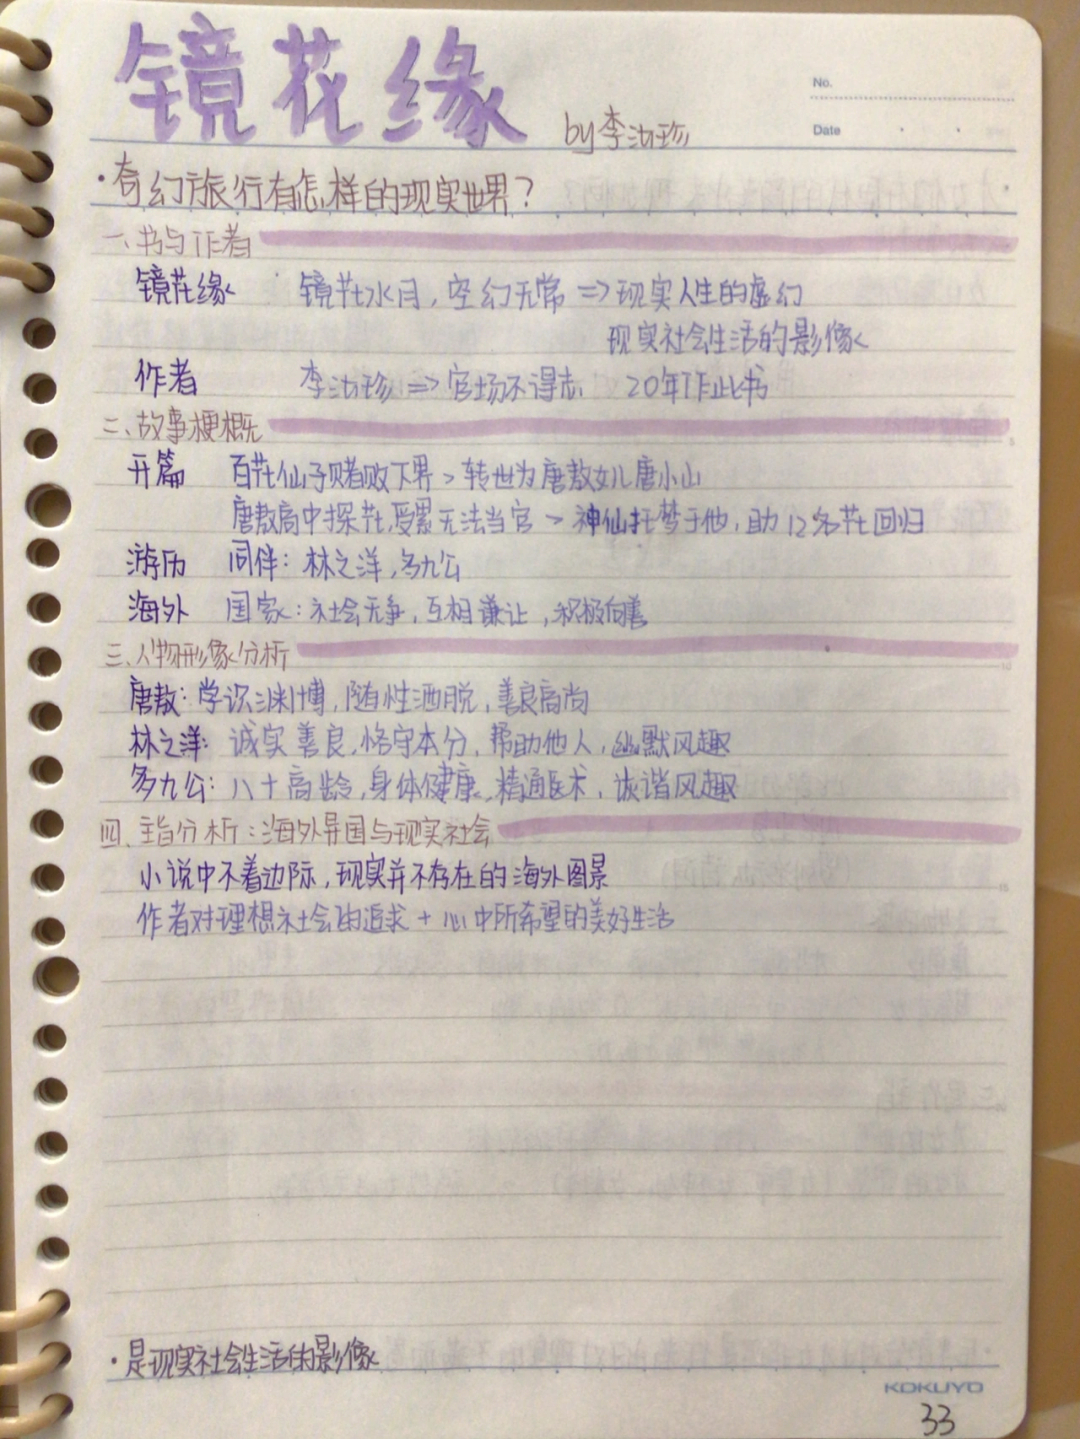 镜花缘
by李汝珍
No.
Date
·奇幻旅行有怎样的现实世界？
一、书与作者
镜花缘 镜花水月，空幻无常 => 现实人生的虚幻
现实社会生活的影像
作者 李汝珍 => 官场不得志 20年作此书
二、故事梗概
开篇 百花仙子赌败下界 > 转世为唐敖女儿唐小山
唐敖高中探花，受累无法当官 > 神仙托梦于他，助12名花回归
游历 同伴：林之洋，多九公
海外 国家：社会无争，互相谦让，积极向善
三、人物形象分析
唐敖：学识渊博，随性洒脱，善良高尚
林之洋：诚实善良，恪守本分，帮助他人，幽默风趣
多九公：八十高龄，身体健康，精通医术，诙谐风趣
四、主旨分析：海外异国与现实社会
小说中不着边际，现实并不存在的海外图景
作者对理想社会的追求 + 心中所希望的美好生活
·是现实社会生活的影像
KOKUYO
33